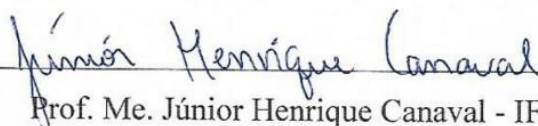 Júnior Henrique Canaval
Prof. Me. Júnior Henrique Canaval - IF